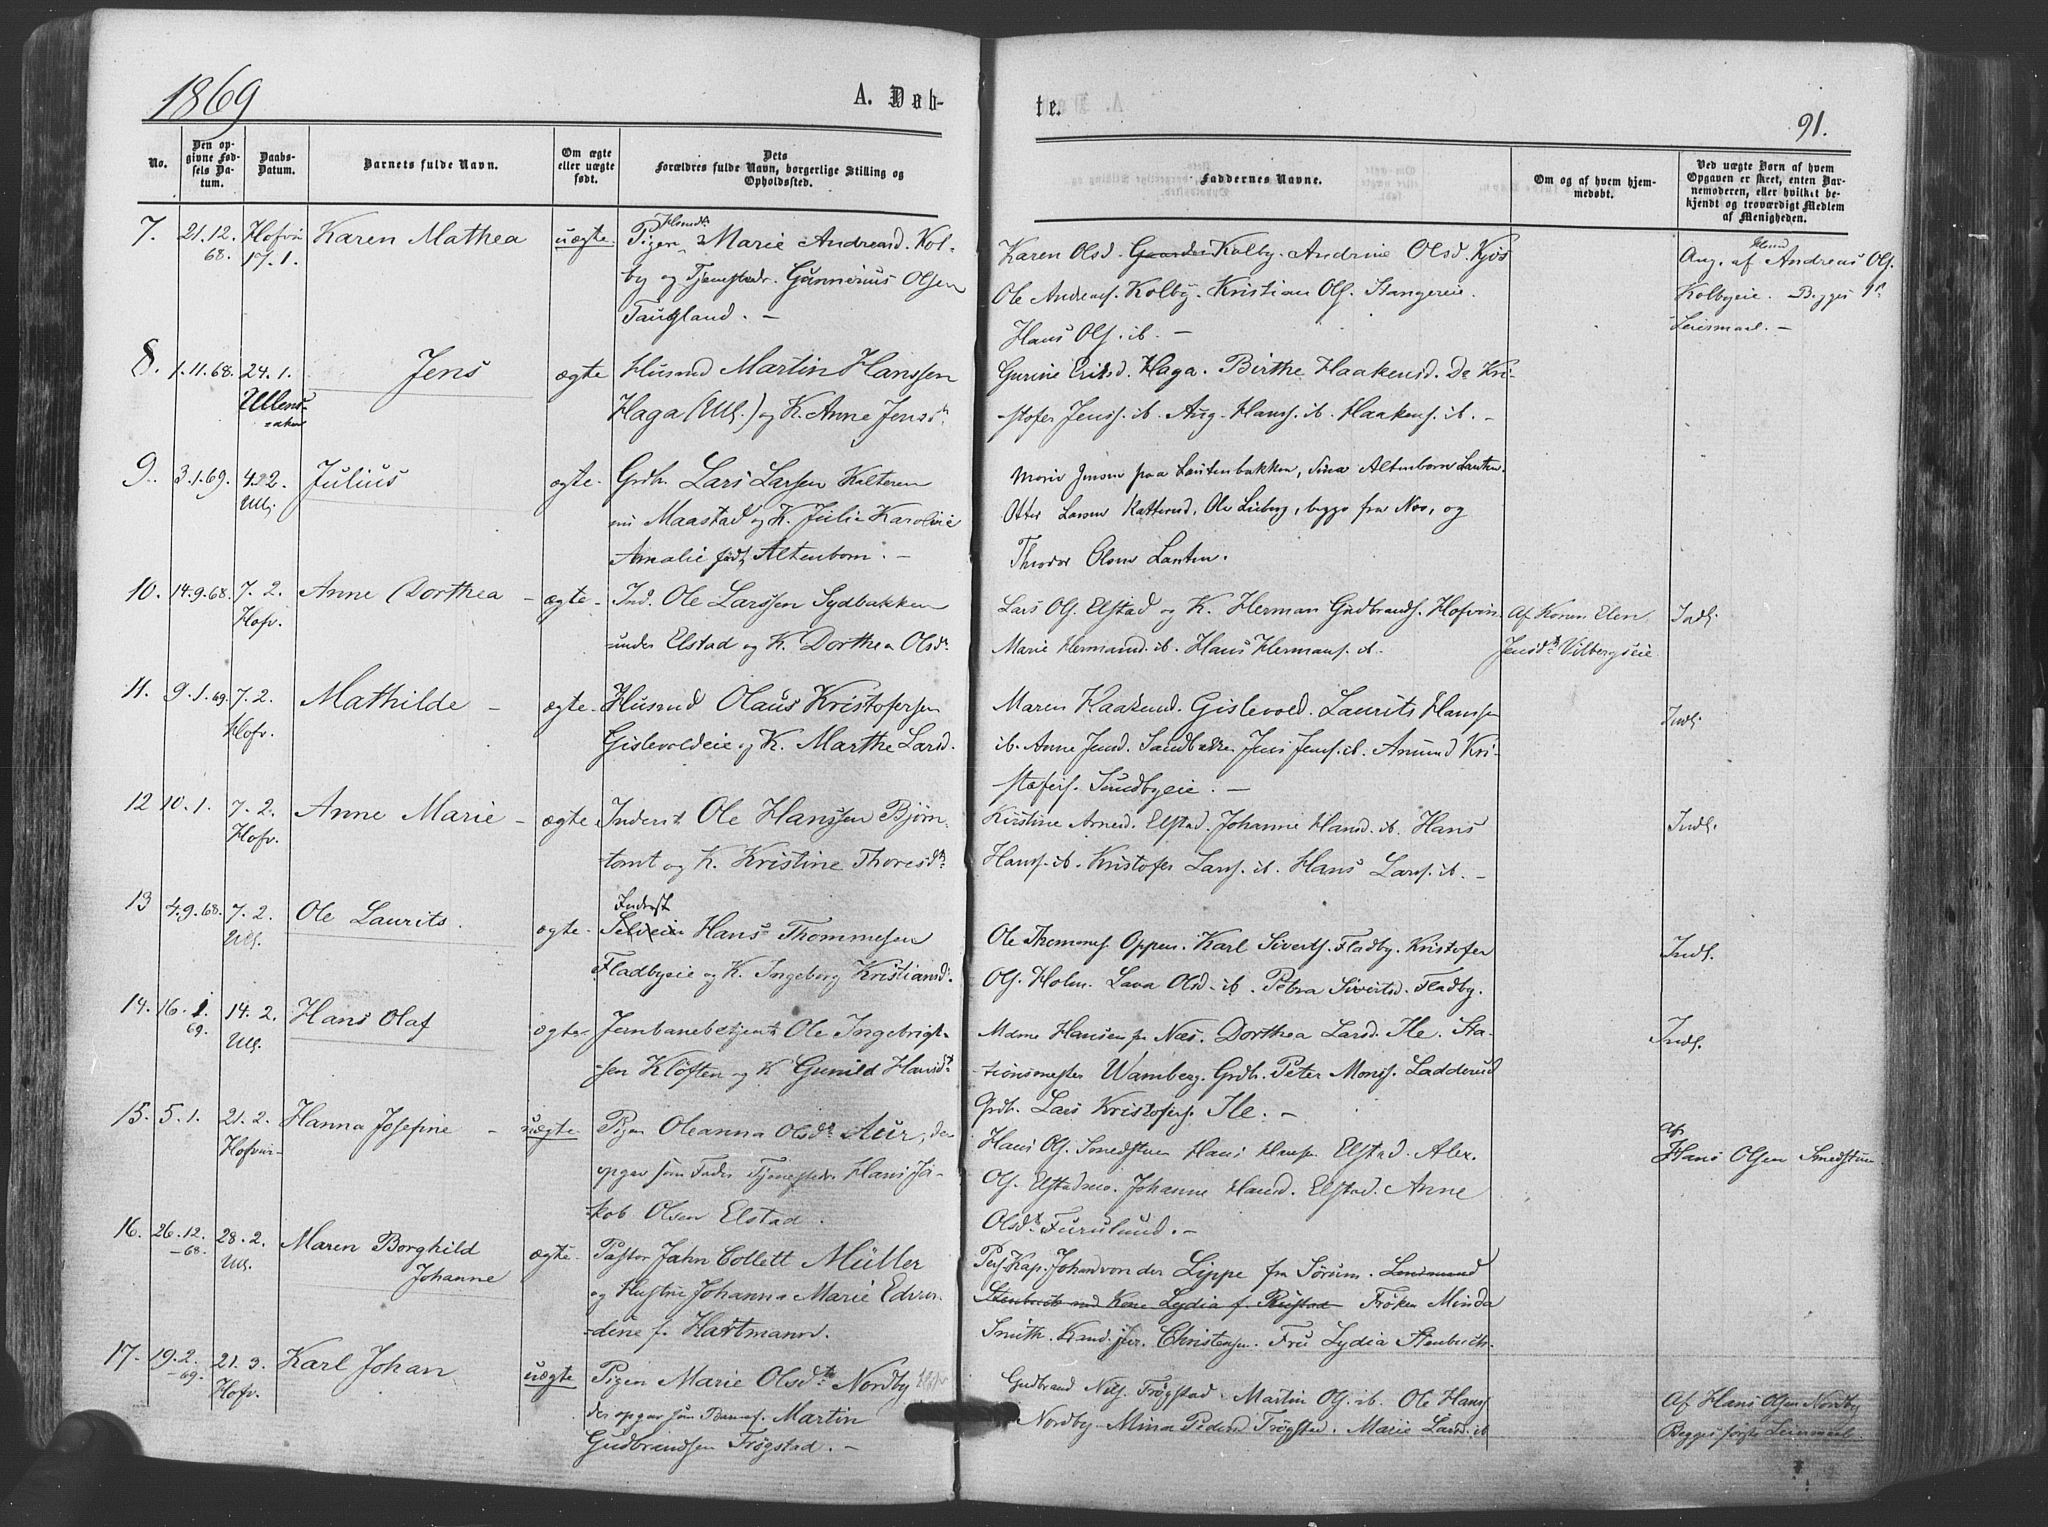 1869
A. Døb-
te.
91.
No.
Den op-
givne Fød-
sels Da-
tum.
Daabs-
Datum.
Barnets fulde Navn.
Om ægte
eller uægte
født.
Dets
Forældres fulde Navn, borgerlige Stilling og
Opholdssted.
Faddernes Navne.
Om og af hvem hjem-
medøbt.
Ved uægte Børn af hvem
Opgaven er skret, enten Bar-
nemoderen, eller hvilket be-
kjendt og troværdigt Medlem
af Menigheden.
7. 21.12. 68. Hofvin 17.1. Karen Mathea uægte
Pigen Marie Andreasd. Kol-
by og Tjenestedr. Gunnerius Olsen
Taugland. -
Karen Olsd. Kolby. Andrine Olsd. Kjøs
Ole Andreass. Kolby. Kristian Ols. Stangereie.
Hans Ols. ib. -
Ang. af Husmd Andreas Ols.
Kolbyeie. Begges 1ste
Leiermaal. -
8. 1.11.68. 24.1. Ullens-
aker Jens ægte
Husmd Martin Hanssen
Haga (Ull.) og K. Anne Jensdtr
Gurine Eriksd. Haga. Birthe Haakensd. Da Kri-
stofer Jenss. ib. Aug. Hanss. ib. Haakens. ib. -
9. 3.1.69. 4.22. Ull. Julius ægte
Grdb. Lars Larsen
Maastad og K. Julie Karoline
Amalie født Altenborn. -
Marie Jensen paa Lautenbakken, Sina Altenborn Lauten
Otter Larsen Katterud, Ole Lieberg, begge fra Nes, og
Theodor Olsen Lauten.
10. 14.9.68. 7.2. Hofv. Anne Dorthea - ægte
Ind. Ole Larssen Sydbakken
under Elstad og K. Dorthea Olsdr
Lars Ols. Elstad og K. Herman Gudbrands. Hofvin
Marie Hermansd. ib. Hans Hermans. ib.
Af Karen Elen
Jensdtr Vilbergseie
Indl.
11. 9.1.69. 7.2. Hofv. Mathilde - ægte
Husmd Olaus Kristofersen
Gislevoldeie og K. Marthe Larsd.
Maren Haakensd. Gislevold. Laurits Hanssen
ib. Anne Jensd. Sandbakken Jens Jenss. ib. Amund Kri-
stofers. Sundbyeie. -
Indl.
12 10.1. 7.2. Hofv. Anne Marie - ægte
Inderst Ole Hanssen Bjørn-
tomt og K. Kristine Thoresdtr
Kirstine Arnesd. Elstad. Johanne Hansd. ib. Hans
Hanss. ib. Kristofer Larss. ib. Hans Larss. ib. -
Indl.
13 4.9.68. 7.2. Ull. Ole Laurits. ægte
Inderst
Selveier Hans Thommesen
Fladbyeie og K. Ingeborg Kristiansd.
Ole Thommes. Oppen. Karl Siverts. Fladby. Kristofer
Ols. Holm. Lava Olsd. ib. Petra Sivertsd. Fladby.
Indl.
14. 16.1. 69. 14.2. Ull. Hans Olaf ægte
Jernbanebetjent Ole Ingebrigt-
sen Kløften og K. Gunild Hansdtr
Mdme Hansen fr. Næs. Dorthea Larsd. Ile. Sta-
tionsmester Wamberg. Grdb. Peter Mons. Ladderud
Grdb. Lars Kristofers. Ile. -
Indl.
15. 5.1. 21.2. Hofvin Hanna Josefine - uægte
Pigen Oleanna Olsdtr Aur, der
opgav som Fader Tjenestedr. Hans Ja-
kob Olsen Elstad.
Hans Ols. Smedstuen Hans Hansen Elstad. Alex.
Ols. Elstadeie. Johanne Hansd. Elstad. Anne
Olsdtr Furulund. -
af
Hans Olsen Smedstuen
16. 26.12. -68. 28.2. Ull. Maren Borghild
Johanne ægte
Pastor Jahn Collett Müller
og Hustru Johanna Marie Edvar-
dine f. Hartmann.
Pers. Kap. Johan von der Lippe fra Sørum. Lensmand
Stenbock og Kone Lydia f. Rustad Frøken Minda
Smith. Kand. jur. Christensen. Fru Lydia Stenbock.
17. 19.2. -69. 21.3. Hofv. Karl Johan uægte
Pigen Marie Olsdtr Nordby
der opgav som Barnef. Martin
Gudbrandsen Frøgstad. -
Gudbrand Nils. Frøgstad. Martin Ols. ib. Ole Hanss.
Nordby. Mina Pedersd. Frøgstad. Marie Larsd. ib
Af Hans Olsen Nordby
Begges første Leiermaal